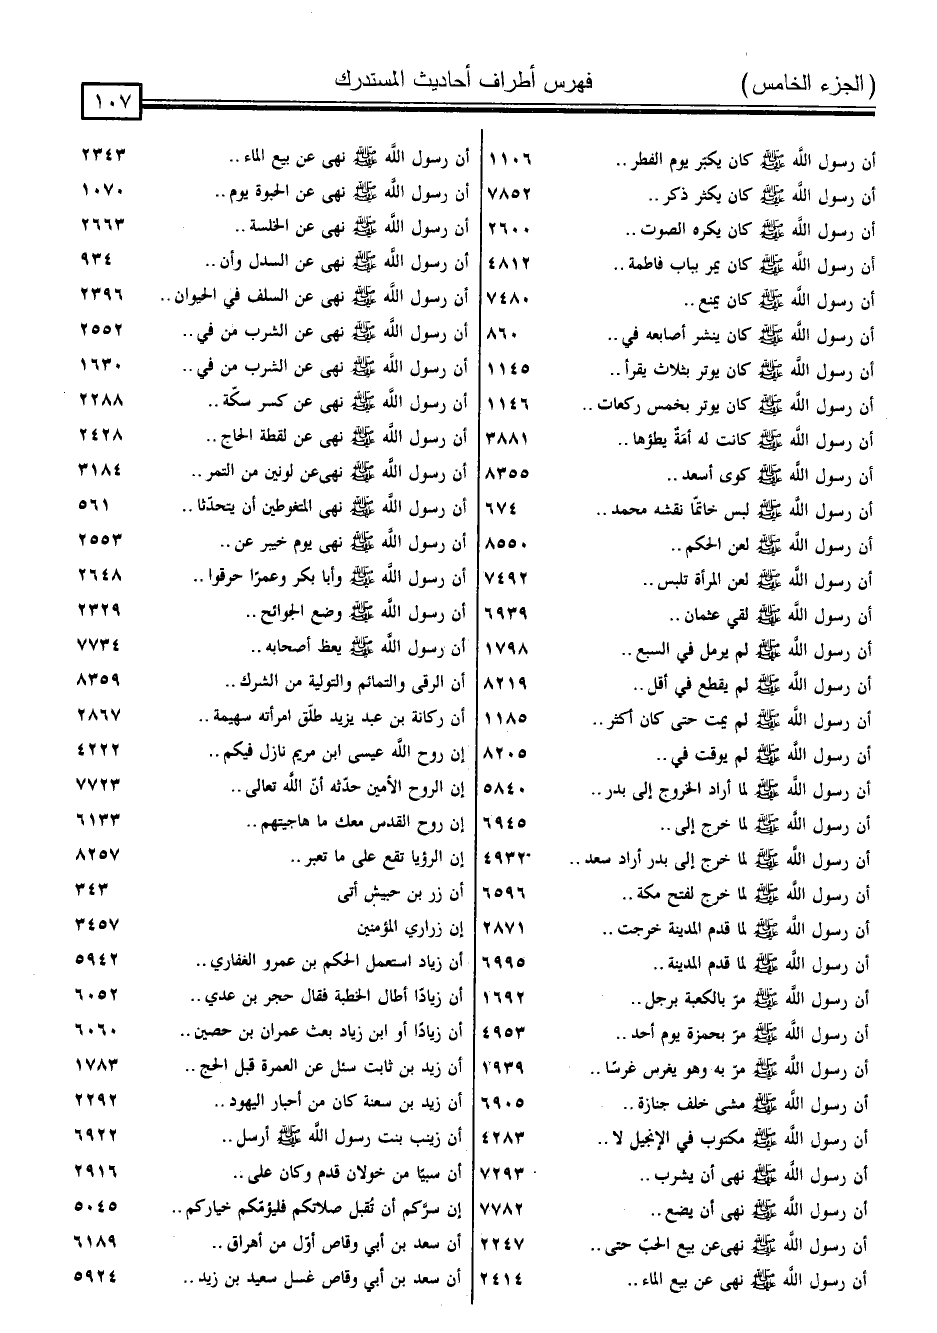 (الجزء الخامس)
فهرس أطراف أحاديث المستدرك
١٠٧
أن رسول اللَّه ﷺ كان يكبّر يوم الفطر .. ١١٠٦
أن رسول اللَّه ﷺ كان يكثر ذكر .. ٧٨٥٢
أن رسول اللَّه ﷺ كان يكره الصوت .. ٢٦٠٠
أن رسول اللَّه ﷺ كان يمر بباب فاطمة .. ٤٨١٢
أن رسول اللَّه ﷺ كان يمنع .. ٧٤٨٠
أن رسول اللَّه ﷺ كان ينشر أصابعه في .. ٨٦٠
أن رسول اللَّه ﷺ كان يوتر بثلاث يقرأ .. ١١٤٥
أن رسول اللَّه ﷺ كان يوتر بخمس ركعات .. ١١٤٦
أن رسول اللَّه ﷺ كانت له أمَةٌ يطؤها .. ٣٨٨١
أن رسول اللَّه ﷺ كوى أسعد .. ٨٣٥٥
أن رسول اللَّه ﷺ لبس خاتمًا نقشه محمد .. ٦٧٤
أن رسول اللَّه ﷺ لعن الحكم .. ٨٥٥٠
أن رسول اللَّه ﷺ لعن المرأة تلبس .. ٧٤٩٢
أن رسول اللَّه ﷺ لقي عثمان .. ٦٩٣٩
أن رسول اللَّه ﷺ لم يرمل في السبع .. ١٧٩٨
أن رسول اللَّه ﷺ لم يقطع في أقل .. ٨٢١٩
أن رسول اللَّه ﷺ لم يمت حتى كان أكثر .. ١١٨٥
أن رسول اللَّه ﷺ لم يوقت في .. ٨٢٠٥
أن رسول اللَّه ﷺ لما أراد الخروج إلى بدر .. ٥٨٤٠
أن رسول اللَّه ﷺ لما خرج إلى .. ٦٩٤٥
أن رسول اللَّه ﷺ لما خرج إلى بدر أراد سعد .. ٤٩٣٢
أن رسول اللَّه ﷺ لما خرج لفتح مكة .. ٦٥٩٦
أن رسول اللَّه ﷺ لما قدم المدينة خرجت .. ٢٨٧١
أن رسول اللَّه ﷺ لما قدم المدينة .. ٦٩٩٥
أن رسول اللَّه ﷺ مرّ بالكعبة برجل .. ١٦٩٢
أن رسول اللَّه ﷺ مرّ بحمزة يوم أحد .. ٤٩٥٣
أن رسول اللَّه ﷺ مرّ به وهو يغرس غرسًا .. ١٩٣٩
أن رسول اللَّه ﷺ مشى خلف جنازة .. ٦٩٠٥
أن رسول اللَّه ﷺ مكتوب في الإنجيل لا .. ٤٢٨٣
أن رسول اللَّه ﷺ نهى أن يشرب .. ٧٢٩٣
أن رسول اللَّه ﷺ نهى أن يضع .. ٧٧٨٢
أن رسول اللَّه ﷺ نهى عن بيع الحبّ حتى .. ٢٢٤٧
أن رسول اللَّه ﷺ نهى عن بيع الماء .. ٢٤١٤
أن رسول اللَّه ﷺ نهى عن بيع الماء .. ٢٣٤٣
أن رسول اللَّه ﷺ نهى عن الحبوة يوم .. ١٠٧٠
أن رسول اللَّه ﷺ نهى عن الخلسة .. ٢٦٦٣
أن رسول اللَّه ﷺ نهى عن السدل وأن .. ٩٣٤
أن رسول اللَّه ﷺ نهى عن السلف في الحيوان .. ٢٣٩٦
أن رسول اللَّه ﷺ نهى عن الشرب من في .. ٢٥٥٢
أن رسول اللَّه ﷺ نهى عن الشرب من في .. ١٦٣٠
أن رسول اللَّه ﷺ نهى عن كسر سكّة .. ٢٢٨٨
أن رسول اللَّه ﷺ نهى عن لقطة الحاج .. ٢٤٢٨
أن رسول اللَّه ﷺ نهى عن لونين من التمر .. ٣١٨٤
أن رسول اللَّه ﷺ نهى المتغوطين أن يتحدّثا .. ٥٦١
أن رسول اللَّه ﷺ نهى يوم خيبر عن .. ٢٥٥٣
أن رسول اللَّه ﷺ وأبا بكر وعمرًا حرقوا .. ٢٦٤٨
أن رسول اللَّه ﷺ وضع الجوائح .. ٢٣٢٩
أن رسول اللَّه ﷺ يعظ أصحابه .. ٧٧٣٤
أن الرقى والتمائم والتولية من الشرك .. ٨٣٥٩
أن ركانة بن عبد يزيد طلّق امرأته سهيمة .. ٢٨٦٧
إن روح اللَّه عيسى ابن مريم نازل فيكم .. ٤٢٢٢
إن الروح الأمين حدّثه أنّ اللَّه تعالى .. ٧٧٢٣
إن روح القدس معك ما هاجيتهم .. ٦١٣٣
إن الرؤيا تقع على ما تعبر .. ٨٢٥٧
أن زر بن حبيش أتى ٣٤٣
إن زراري المؤمنين ٣٤٥٧
أن زياد استعمل الحكم بن عمرو الغفاري .. ٥٩٤٢
أن زيادًا أطال الخطبة فقال حجر بن عدي .. ٦٠٥٢
أن زيادًا أو ابن زياد بعث عمران بن حصين .. ٦٠٦٠
أن زيد بن ثابت سئل عن العمرة قبل الحج .. ١٧٨٣
أن زيد بن سعنة كان من أحبار اليهود .. ٢٢٩٢
أن زينب بنت رسول اللَّه ﷺ أرسل .. ٦٩٢٢
أن سبيًا من خولان قدم وكان على .. ٢٩١٦
إن سرّكم أن تُقبل صلاتكم فليؤمّكم خياركم .. ٥٠٤٥
أن سعد بن أبي وقاص أوّل من أهراق .. ٦١٨٩
أن سعد بن أبي وقاص غسل سعيد بن زيد .. ٥٩٢٤